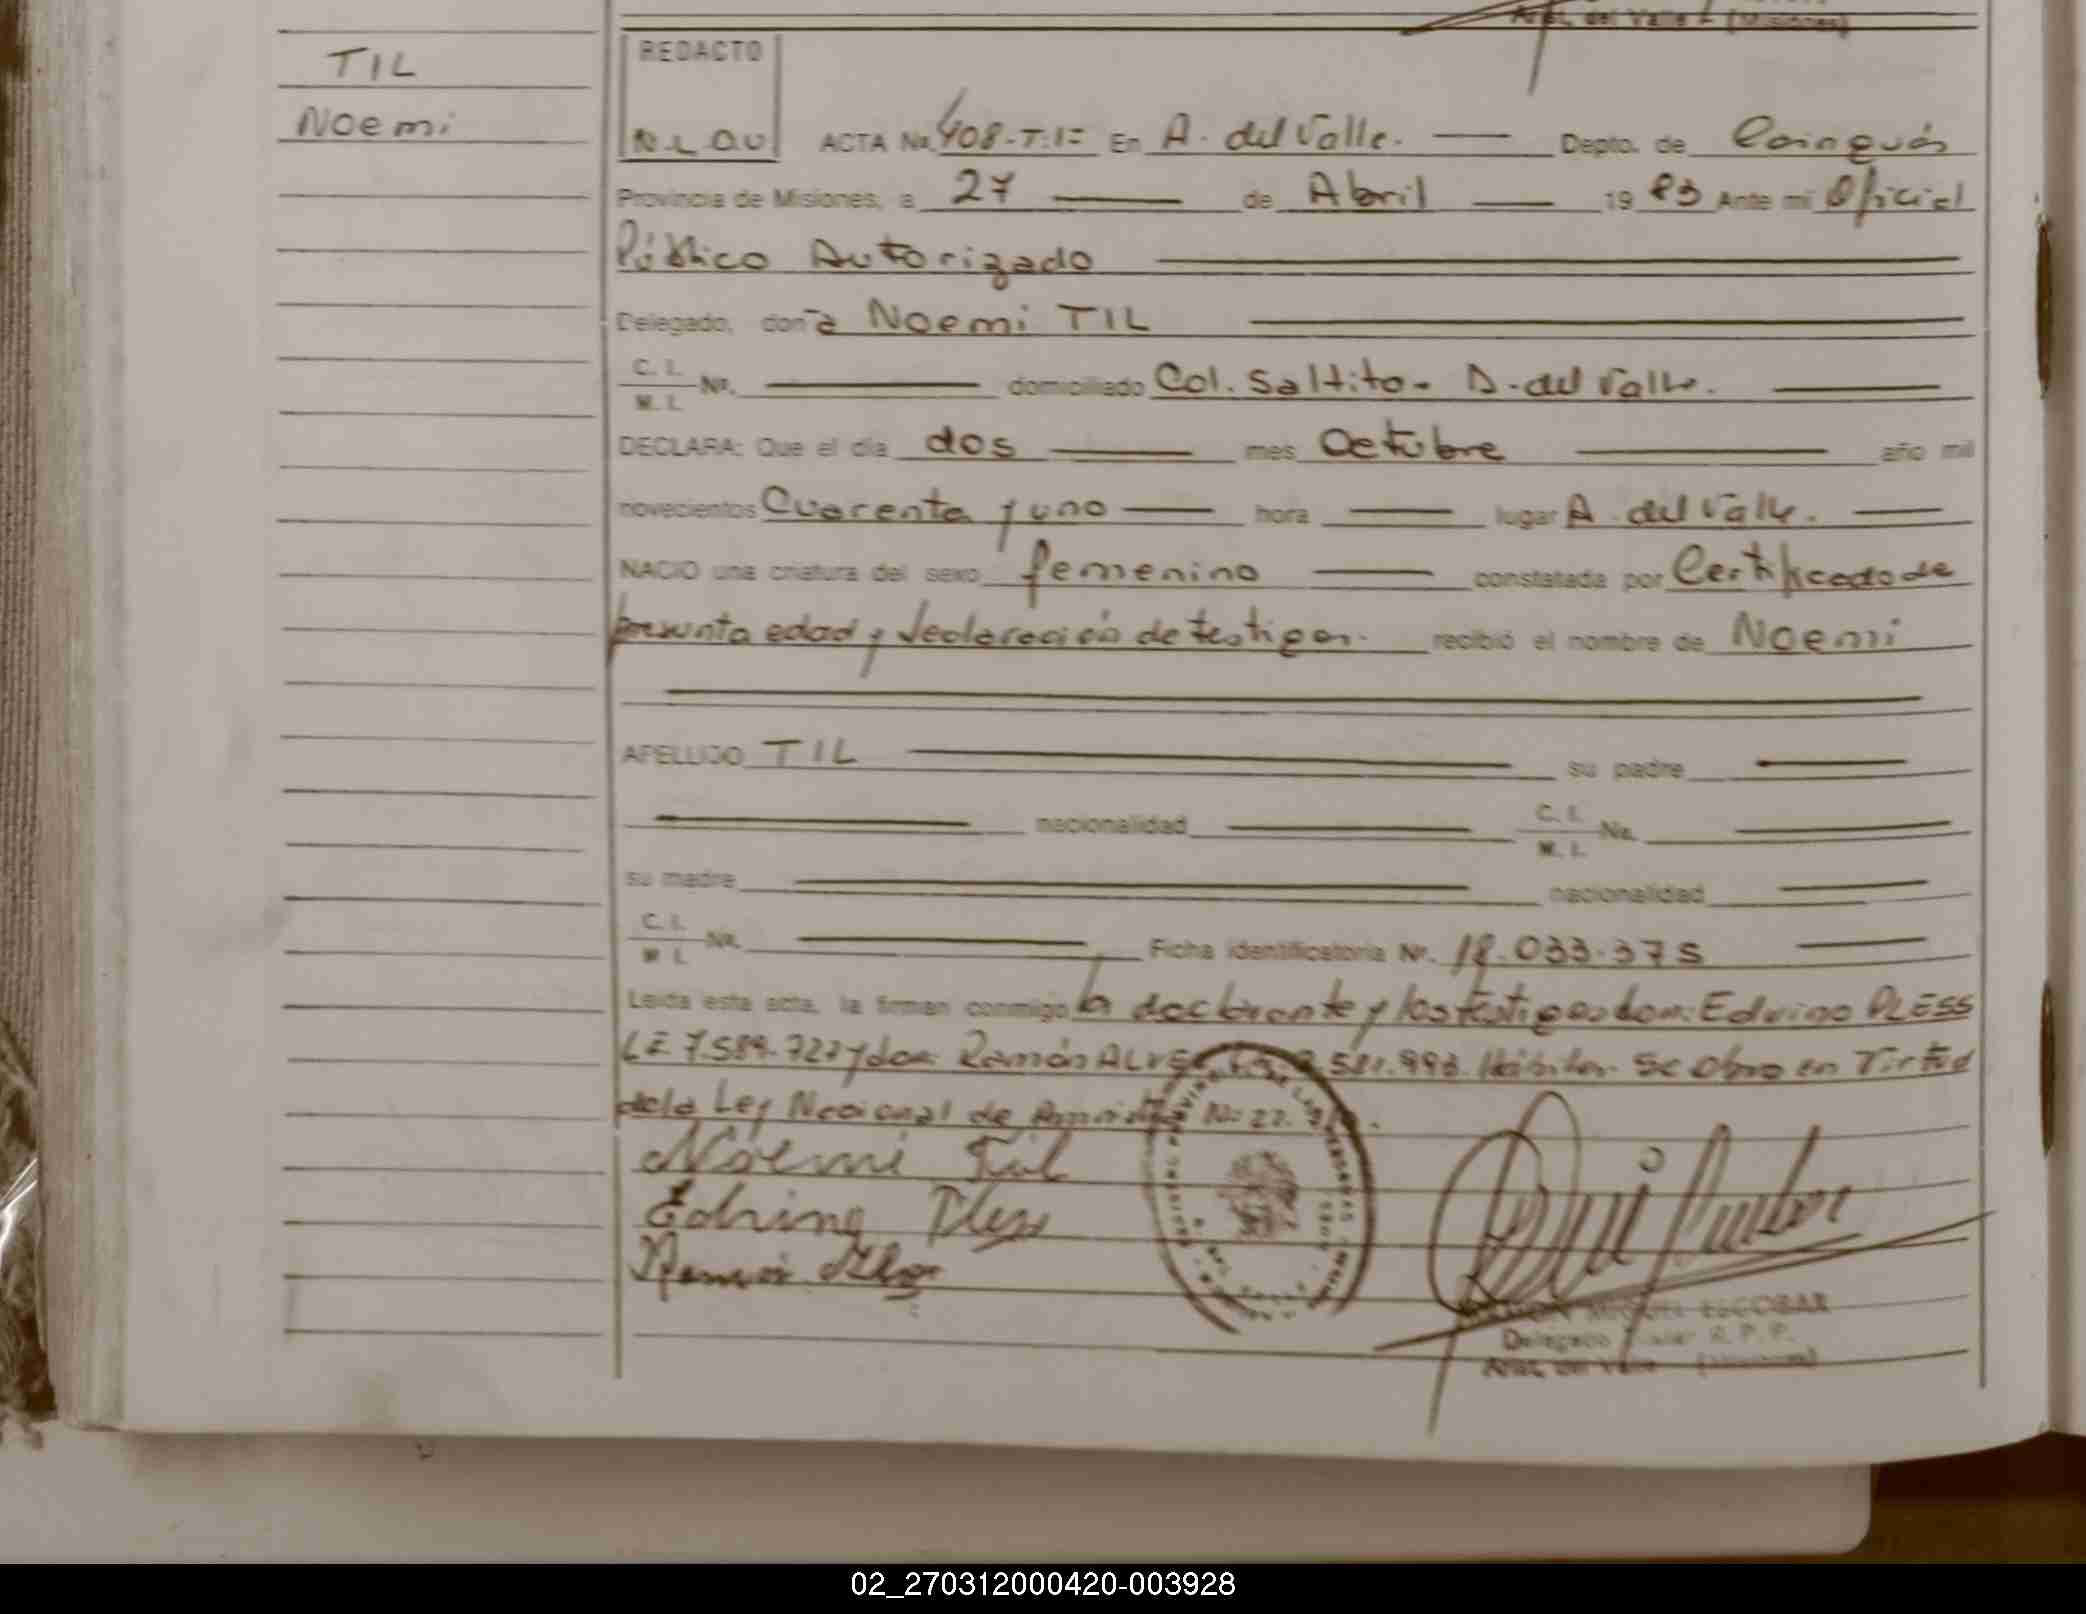 Arist. del Valle - (Misiones)
TIL
Noemi
REDACTO
ACTA No. 408-T:I= En A. del Valle. Depto. de Cainguás
Provincia de Misiones, a 27 de Abril 1983 Ante mi Oficial
Público Autorizado
Delegado, don̄a Noemi TIL
C. I.
M. I. Nº. domiciliado Col. Saltito - A. del Valle.
DECLARA: Que el día dos mes Octubre año mil
novecientos Cuarenta y uno hora lugar A. del Valle.
NACIO una criatura del sexo femenino constatada por Certificado de
presunta edad y declaración de testigos. recibió el nombre de Noemi
APELLIDO TIL su padre
nacionalidad C. I.
M. I. Nº.
su madre nacionalidad
C. I.
M. I. Nº. Ficha identificatoria Nº. 18.033.375
Leída esta acta, la firman conmigo la declarante y los testigos don: Edvino PLESS
LE 7.589.722 y don Ramón ALVES Hábiles. Se Obro en Virtud
de la Ley Nacional de Amnistía No 22.
Noemi Til
Edvino Pless
Ramon
MIGUEL ESCOBAR
Delegado R. P. P.
Arist. del Valle (Misiones)
02_270312000420-003928